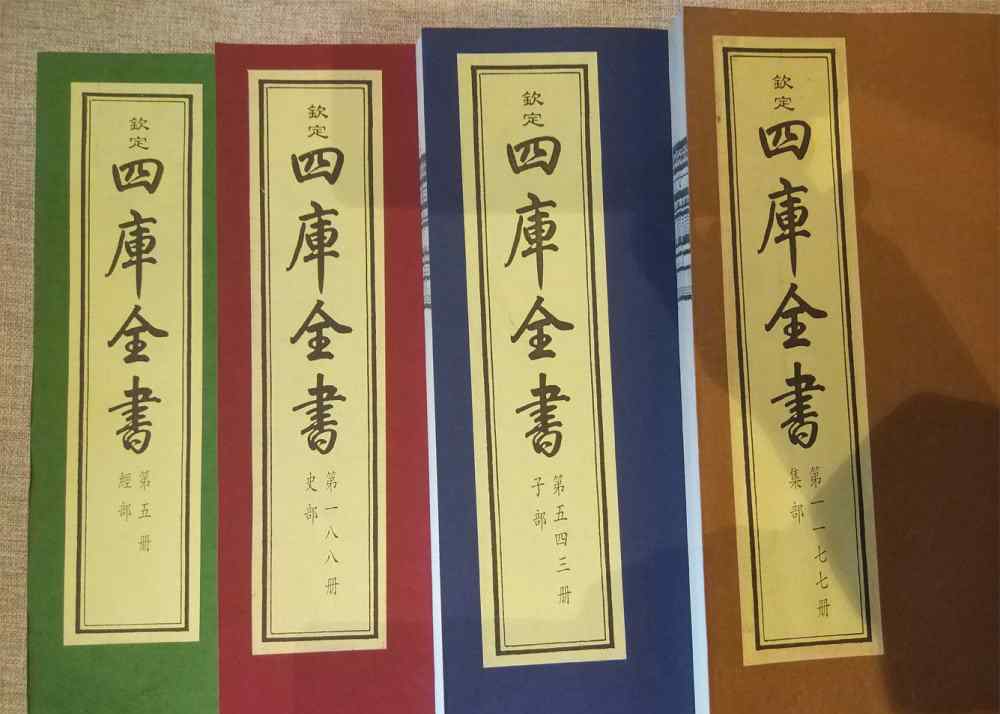 欽定
四庫全書
第五冊
經部
欽定
四庫全書
第一八八冊
史部
欽定
四庫全書
第五四三冊
子部
欽定
四庫全書
第一一七七冊
集部